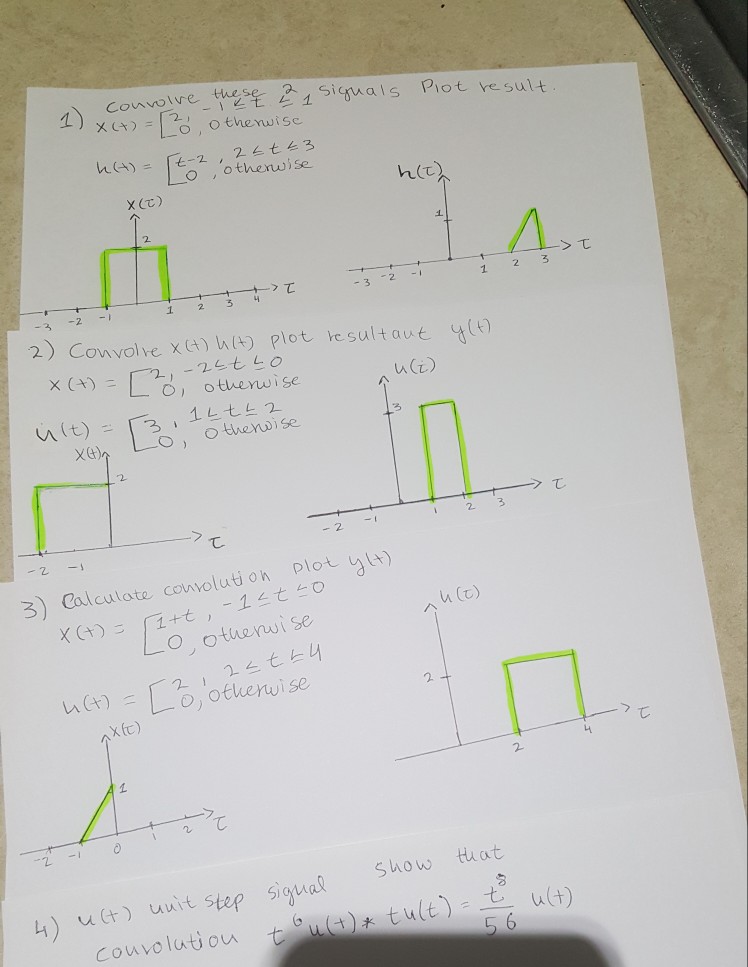 1) Convolve these 2 signals Plot result.
x(t) = [2, -1 ≤ t ≤ 1
0, otherwise
h(t) = [t-2, 2 ≤ t ≤ 3
0, otherwise
x(τ)
2
-3 -2 -1 1 2 3 4 τ
h(τ)
1
-3 -2 -1 1 2 3 τ
2) Convolve x(t) h(t) plot resultant y(t)
x(t) = [2, -2 ≤ t ≤ 0
0, otherwise
h(t) = [3, 1 ≤ t ≤ 2
0, otherwise
x(t)
2
-2 -1 τ
h(τ)
3
-2 -1 1 2 3 τ
3) Calculate convolution plot y(t)
x(t) = [1+t, -1 ≤ t ≤ 0
0, otherwise
h(t) = [2, 2 ≤ t ≤ 4
0, otherwise
x(τ)
1
-2 -1 0 1 2 τ
h(τ)
2
2 4 τ
4) u(t) unit step signal show that
convolution t^6 u(t) * t u(t) = t^8/56 u(t)